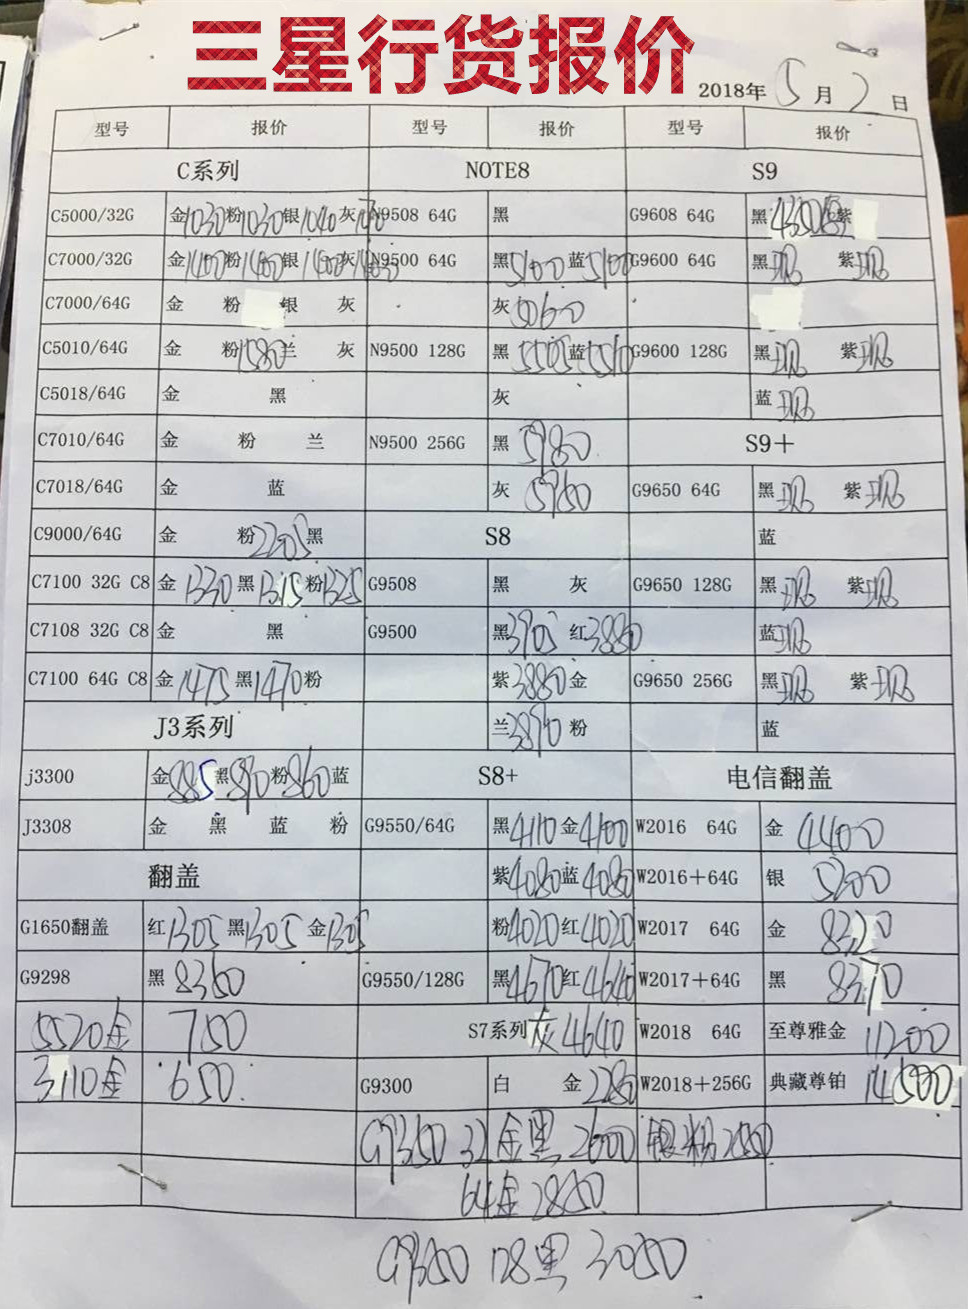 三星行货报价
2018年5月2日
型号 报价 型号 报价 型号 报价
C系列 NOTE8 S9
C5000/32G 金1030粉1030银1040灰 N9508 64G 黑 G9608 64G 黑4350 紫
C7000/32G 金1400粉1400银1400灰 N9500 64G 黑5100蓝5100 G9600 64G 黑现 紫现
C7000/64G 金 粉 银 灰 灰5060
C5010/64G 金 粉1580兰 灰 N9500 128G 黑5505蓝5510 G9600 128G 黑现 紫现
C5018/64G 金 黑 灰 蓝现
C7010/64G 金 粉 兰 N9500 256G 黑5980 S9+
C7018/64G 金 蓝 灰5950 G9650 64G 黑现 紫现
C9000/64G 金 粉2205黑 S8 蓝
C7100 32G C8 金1330黑1315粉1325 G9508 黑 灰 G9650 128G 黑现 紫现
C7108 32G C8 金 黑 G9500 黑3905 红3880 蓝现
C7100 64G C8 金1475黑1470粉 紫3880金 G9650 256G 黑现 紫现
J3系列 兰3890粉 蓝
j3300 金885黑890粉860蓝 S8+ 电信翻盖
J3308 金 黑 蓝 粉 G9550/64G 黑4110金4100 W2016 64G 金 4400
翻盖 紫4080蓝4080 W2016+64G 银 5200
G1650翻盖 红1305黑1305 金1305 粉4020红4020 W2017 64G 金 8320
G9298 黑8360 G9550/128G 黑4670红4640 W2017+64G 黑 8370
5520金 750 S7系列 灰4640 W2018 64G 至尊雅金 11200
3110金 650 G9300 白 金2280 W2018+256G 典藏尊铂 14500
G9350 32 金黑 2600 银粉2550
64金2850
G9350 128黑 3050